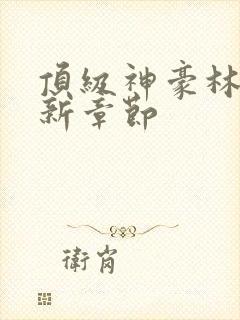 頂級神豪林
新章節
衛肖